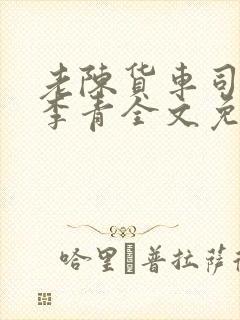 老陳货車司
李青全文免
哈里 普拉萨